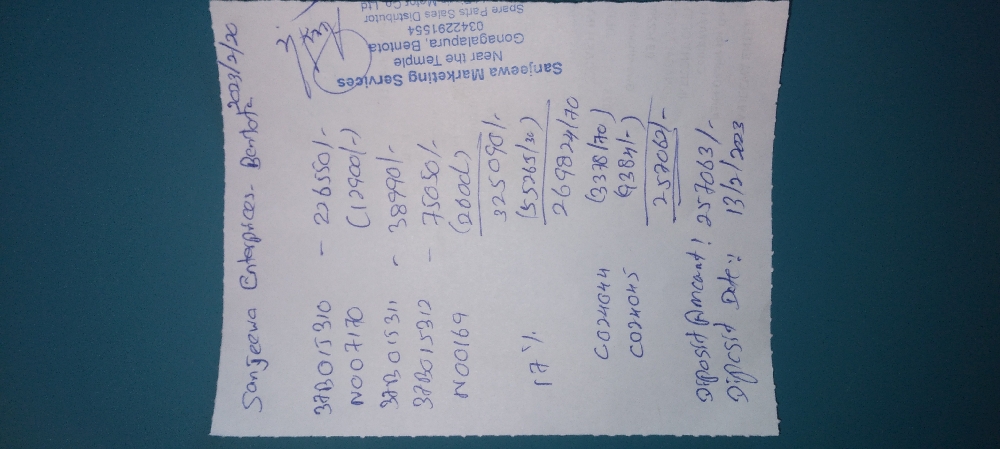 Sanjeewa Enterprices - Bentota 2023/2/20
37B015310 - 226550/-
N007170 (12900/-)
37B015311 - 38990/-
37B015312 - 75050/-
N00169 (2600/-)
325090/-
17% (55265/30)
269824/70
C024044 (3378/70)
C024045 (9384/-)
257062/-
Diposit Amount: 257063/-
Diposit Date: 13/2/2023
Sanjeewa Marketing Services
Near the Temple
Gonagalapura, Bentota
0342291554
Spare Parts Sales Distributor
Motor Co. Ltd